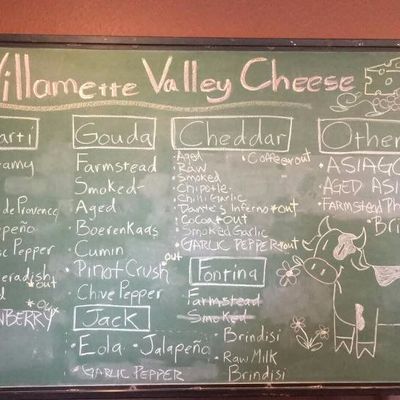 Willamette Valley Cheese
arti
amy
de Provence
peño
ic Pepper
eradish
*out
d
*out
NBERRY
Gouda
Farmstead
Smoked
Aged
• Boerenkaas
Cumin
• Pinot Crush out
• Chive Pepper
Jack
• Eola • Jalapeño
• GARLIC PEPPER
Cheddar
• Aged • Coffee *out
• Raw
• Smoked
• Chipotle
• Chili Garlic
• Dante's Inferno *out
• Cocoa *out
• Smoked Garlic
• GARLIC PEPPER *out
Fontina
Farmstead
Smoked
• Brindisi
• Raw Milk
Brindisi
Othe
• ASIAGO
• AGED ASI
• FARMSTEAD
• Bri